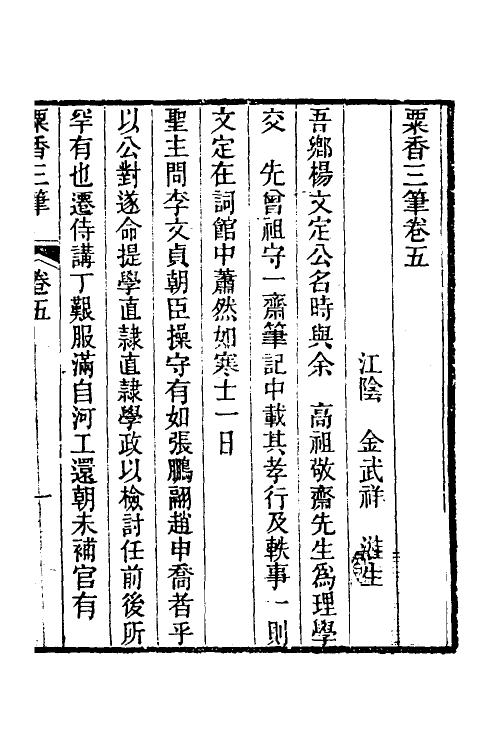 粟香三筆卷五
江陰　金武祥　溎生
吾鄉楊文定公名時與余　高祖敬齋先生爲理學
交　先曾祖守一齋筆記中載其孝行及軼事一則
文定在詞館中蕭然如寒士一日
聖主問李文貞朝臣操守有如張鵬翮趙申喬者乎
以公對遂命提學直隷直隷學政以檢討任前後所
罕有也遷侍講丁艱服滿自河工還朝未補官有
粟香三筆　卷五　一